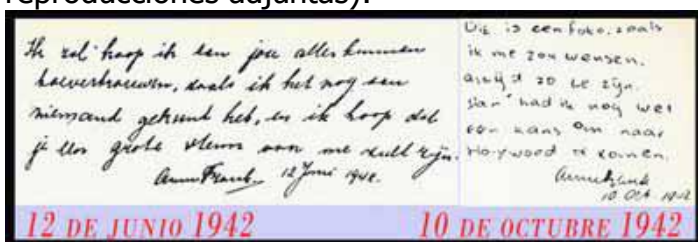 reproducciones adjuntas).
Ik zal hoop ik aan jou alles kunnen
toevertrouwen, zoals ik het nog aan
niemand gekund heb, en ik hoop dat
je een grote steun voor me zult zijn.
Anne Frank. 12 Juni 1942.
Dit is een foto, zoals
ik me zou wensen,
altijd zo te zijn.
Dan had ik nog wel
een kans om naar
Holywood te komen.
Anne Frank
10 Oct. 1942
12 DE JUNIO 1942
10 DE OCTUBRE 1942